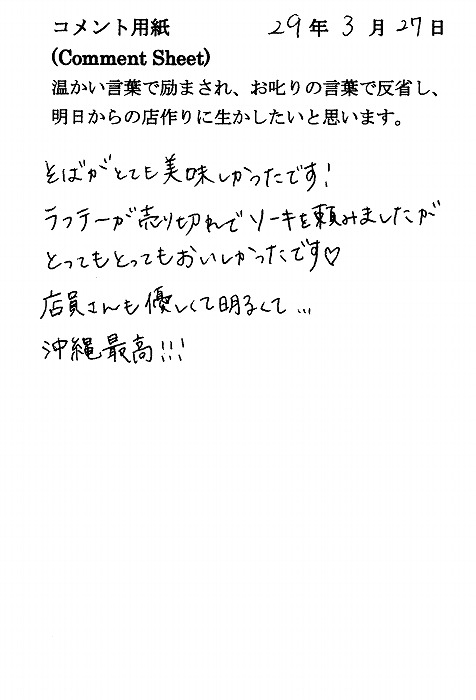 コメント用紙 29年 3月 27日
(Comment Sheet)
温かい言葉で励まされ、お叱りの言葉で反省し、
明日からの店作りに生かしたいと思います。
そばがとても美味しかったです!
ラフテーが売り切れでソーキを頼みましたが
とってもとってもおいしかったです♡
店員さんも優しくて明るくて...
沖縄最高!!!